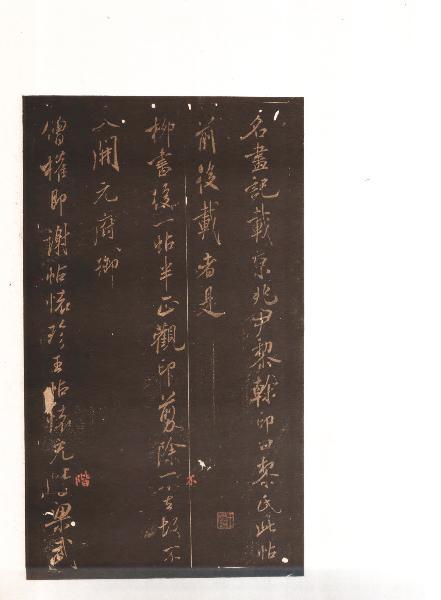 名畫記載京兆尹黎幹印曰黎氏此帖
前後載者是
柳書後一帖半正觀印剪除不去不
入開元府御
僧權即謝帖懷珍王帖懷充此梁武